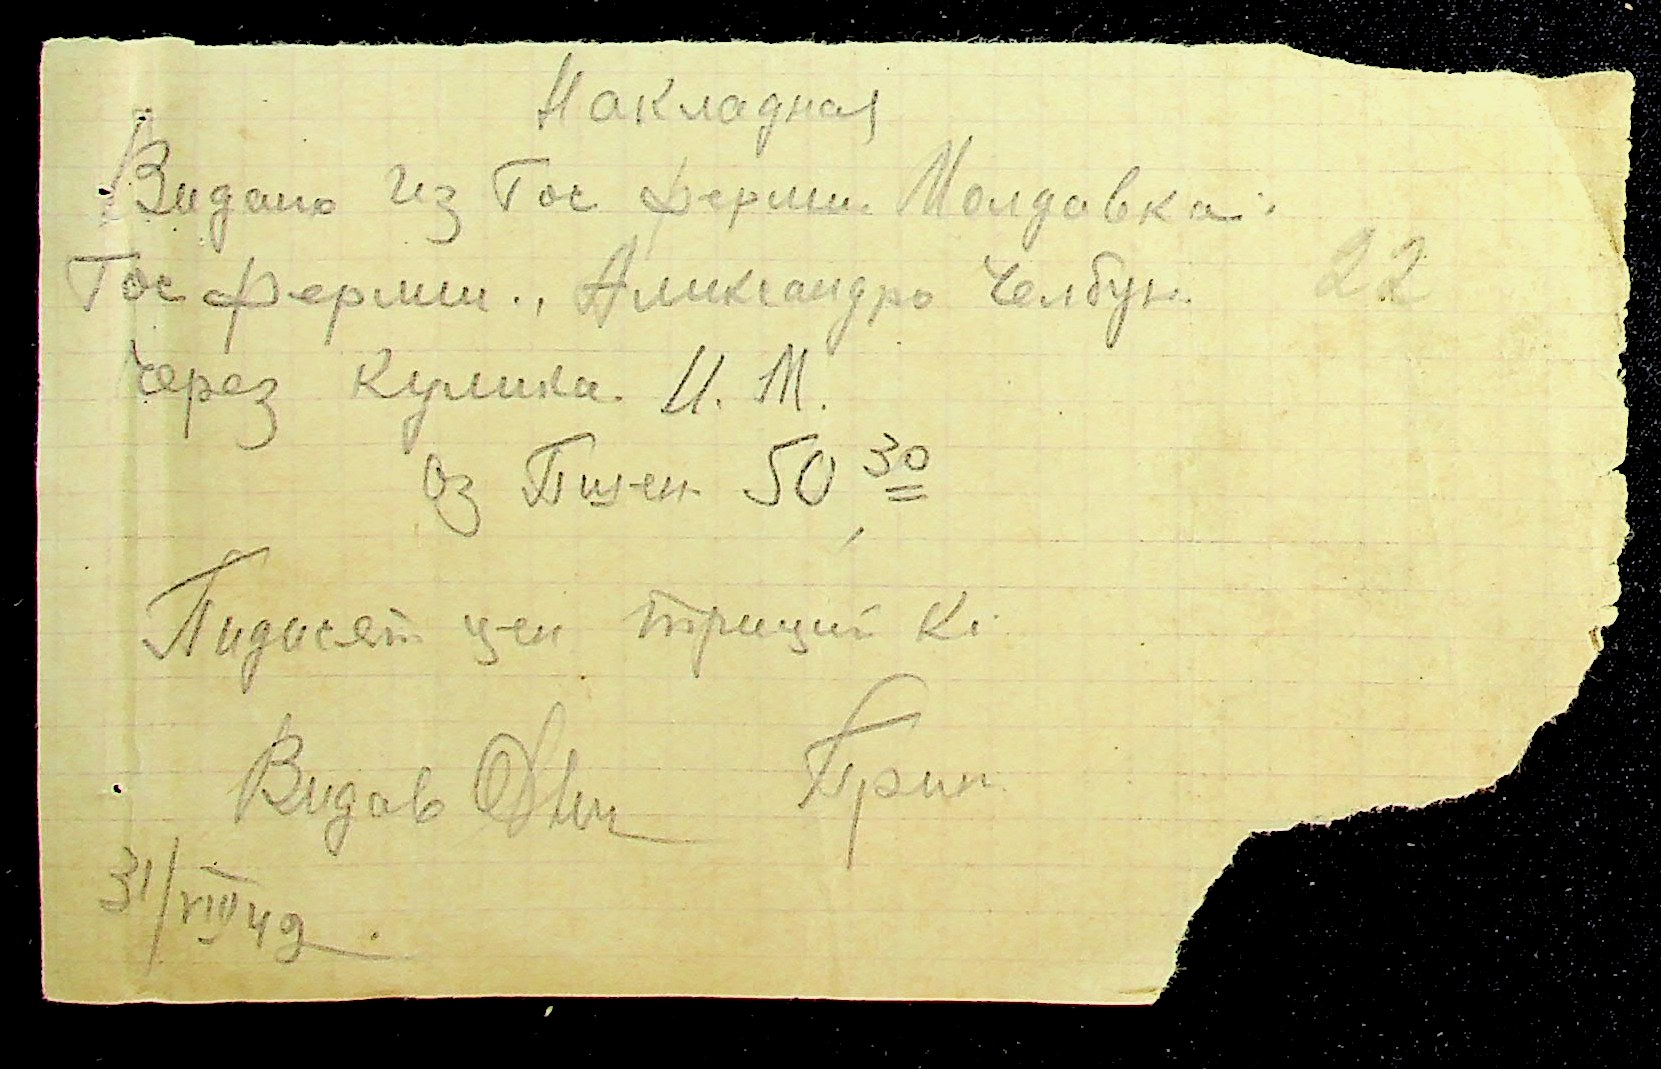 Накладная
Видано из Гос ферми. Молдавка.
Гос ферми., Александро Челбун. 22
Через Кулика. И. М.
Оз Пшен 50,30
Пидисят цен трицит Кг.
Видав Прин
31/VIII 42.